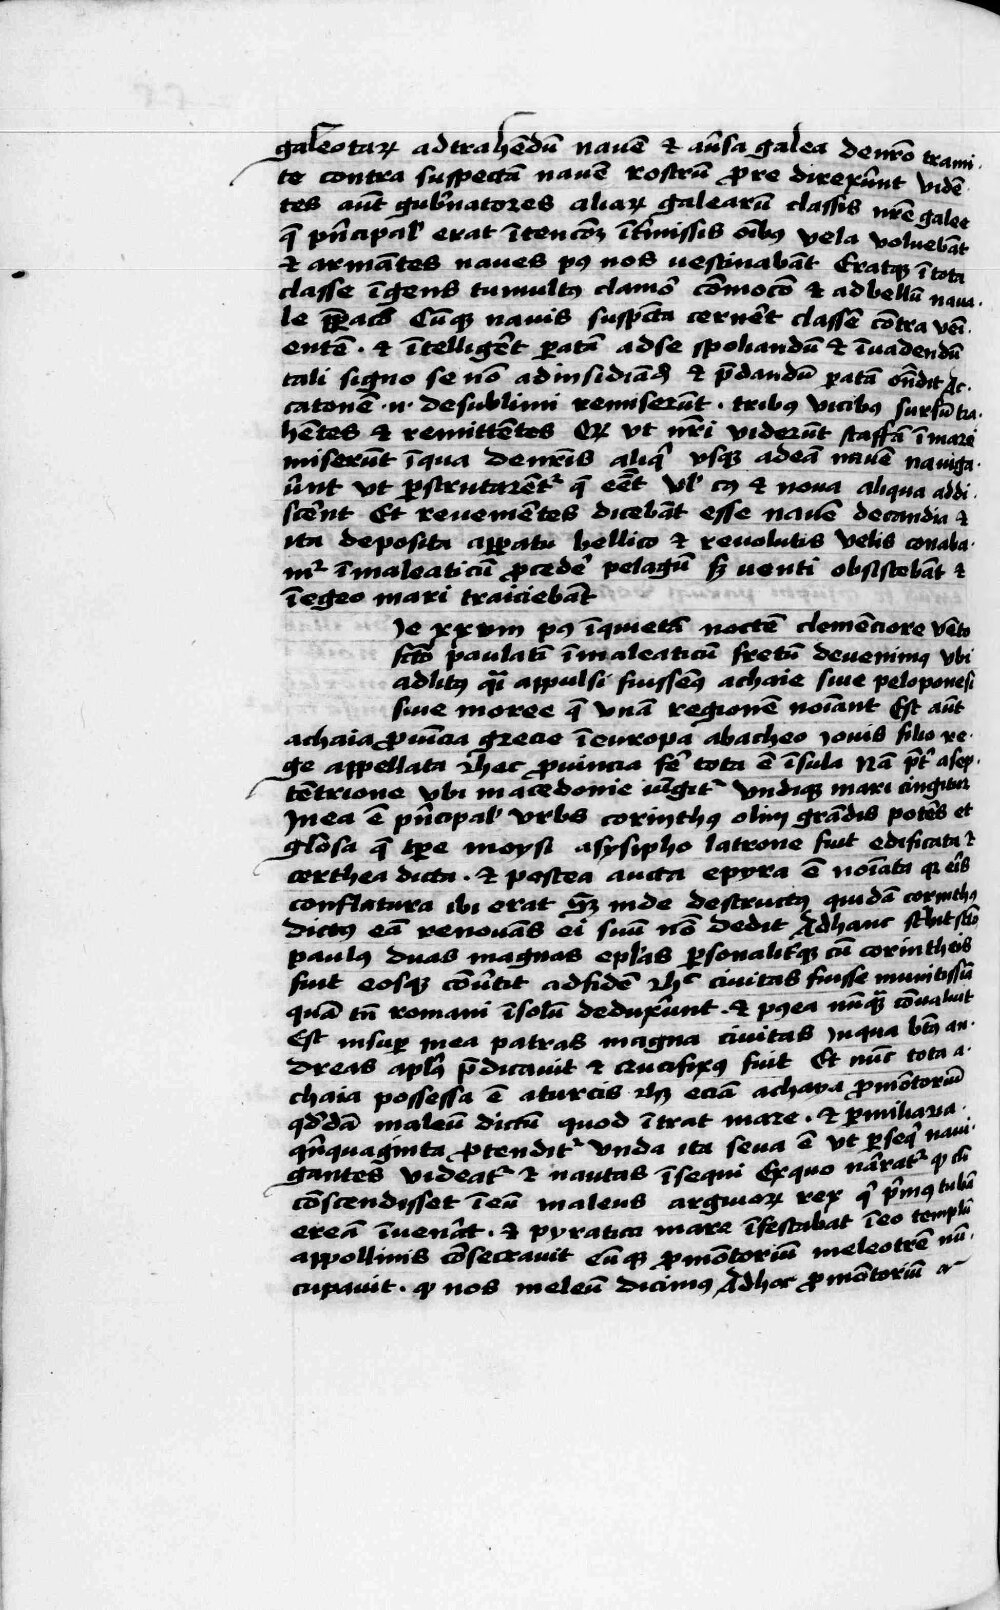 galeotaꝝ ad trahēdū navē & aūsa galea de nr̄o trami-
te contra suspectā navē rostrū ꝓre direxūnt vidē-
tes aūt gub̄natores aliaꝝ galearū classis nr̄e galee
q̄ pn̄cipal' erat ītencōꝫ īt̄missis oībꝯ vela voluebāt
& armātes naves pꝯ nos uestinabāt Eratqꝫ ī tota
classe īgens tumultꝯ clamor̄ cōmocō & ad bellū nava-
le Cūqꝫ navis suspc̄ta cernēt classē cōtra veni-
entē. & ītelligēt ꝑatā ad se spoliandū & īvadendū
tali signo se nō ad insidiād & p̄dandū ꝑatā on̄dit Ac-
catonē .n. de sublimi remiserūt. tribꝯ vicibꝯ sursū tra-
hētes & remittētes Ex ut nr̄i viderūt staffā ī mare
miserūt ī qua de nr̄is aliq̄ vsqꝫ ad eā navē naviga-
ūnt ut ꝑscrutarēt^r q̄ eēt vl' cꝯ & nova aliqua addi-
scēnt Et revenientes dicebāt esse navē de candia &
ita deposita apꝑatu bellico & revolutis velis conaba-
m^r ī maleaticū ꝓcedē pelagū sꝫ venti obsistebāt &
ī egeo mari traiciebāt
Ie xxviii pꝯ īquietā noctē clemēciore vēto
fc̄to paulatī ī maleaticū fretū devenimꝯ ubi
ad litꝯ q̄i appulsi fuissemꝯ achaie sive peloponesi
sive moree q̄ vnā regionē noīant Est aūt
achaia ꝓvīcia grecie ī europa ab acheo iovis filio re-
ge appellata & hec ꝓvincia fe͂ tota ē īsula Nā p̄t asep-
tētrione vbi macedonie iūgit^r vndiqꝫ mari cingitur
In ea ē pn̄cipal' vrbs corinthꝯ olim grādis potēs et
gl̄osa q̄ tp̄e moysi a sysipho latrone fuit edificata &
corthea dicta. & postea aucta epyra ē noīata qr eīs
conflatura ibi erat inde destructꝯ quidā corinthꝯ
dictꝯ eā renovās ei suū nō dedit Ad hanc sc̄tꝯ
paulꝯ duas magnas epl̄as ꝑsonalit^rqꝫ cū corintheis
fuit eosqꝫ cōv̄tit ad fidē & h^c civitas fuisse munitissīa
quā tn̄ romani ī solū deduxūnt. & pꝯea nūqꝫ cōvaluit
Est insuꝑ in ea patras magna civitas In qua bt̄ꝯ an-
dreas apl̄s p̄dicavit & crucifixꝯ fuit Et nūc tota a-
chaia possessa ē a turcis & hꝫ eciā achaya ꝓmōtoriū
qd̄dā maleū dictū quod ītrat mare. & ꝑ miliaria
qīnquaginta ꝓtendit^r vnda ita seva ē ut ꝑseq̄ navi-
gantes videat^r & nautas īsequi Ex quo nārat^r ꝙ cū
cōscendisset ī eū maleus argivoꝝ rex q̄ p̄mꝯ tubā
ereā īvenāt. & pyratica mare īfestabat ī eo templū
appollinis cōsecravit Cūqꝫ ꝓmōtoriū meleotrē nū-
cupavit. ꝙ nos meleū dicimꝯ Ad hoc ꝓmōtoriū